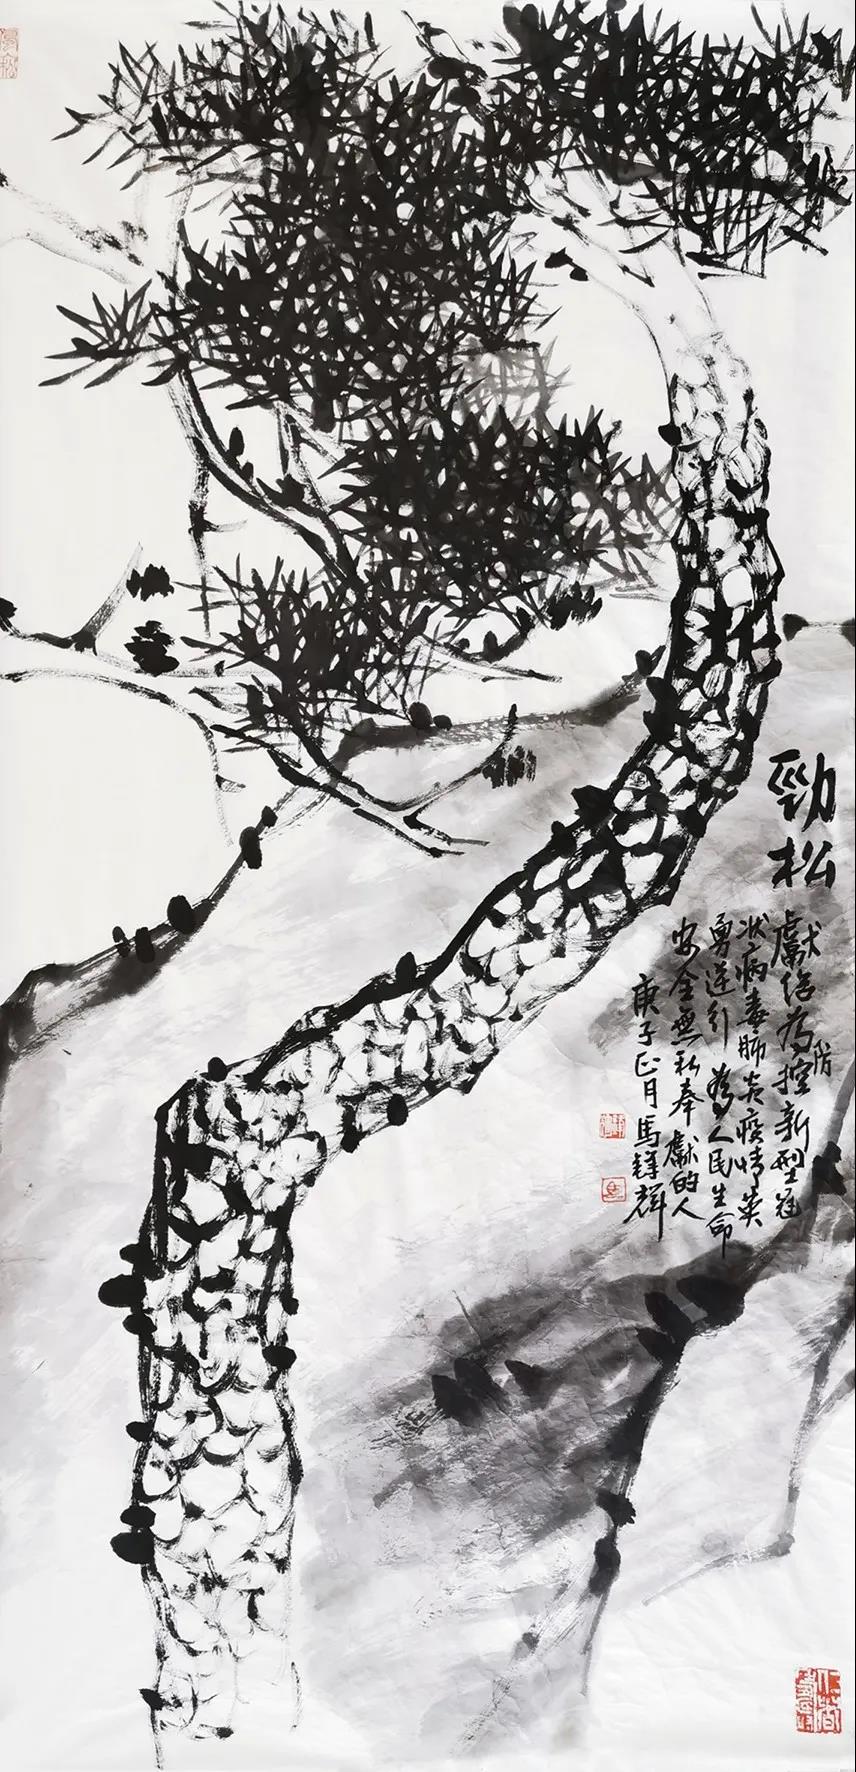 勁松
獻给為防控新型冠
状病毒肺炎疫情英
勇逆行為人民生命
安全無私奉獻的人
庚子正月馬鋒輝